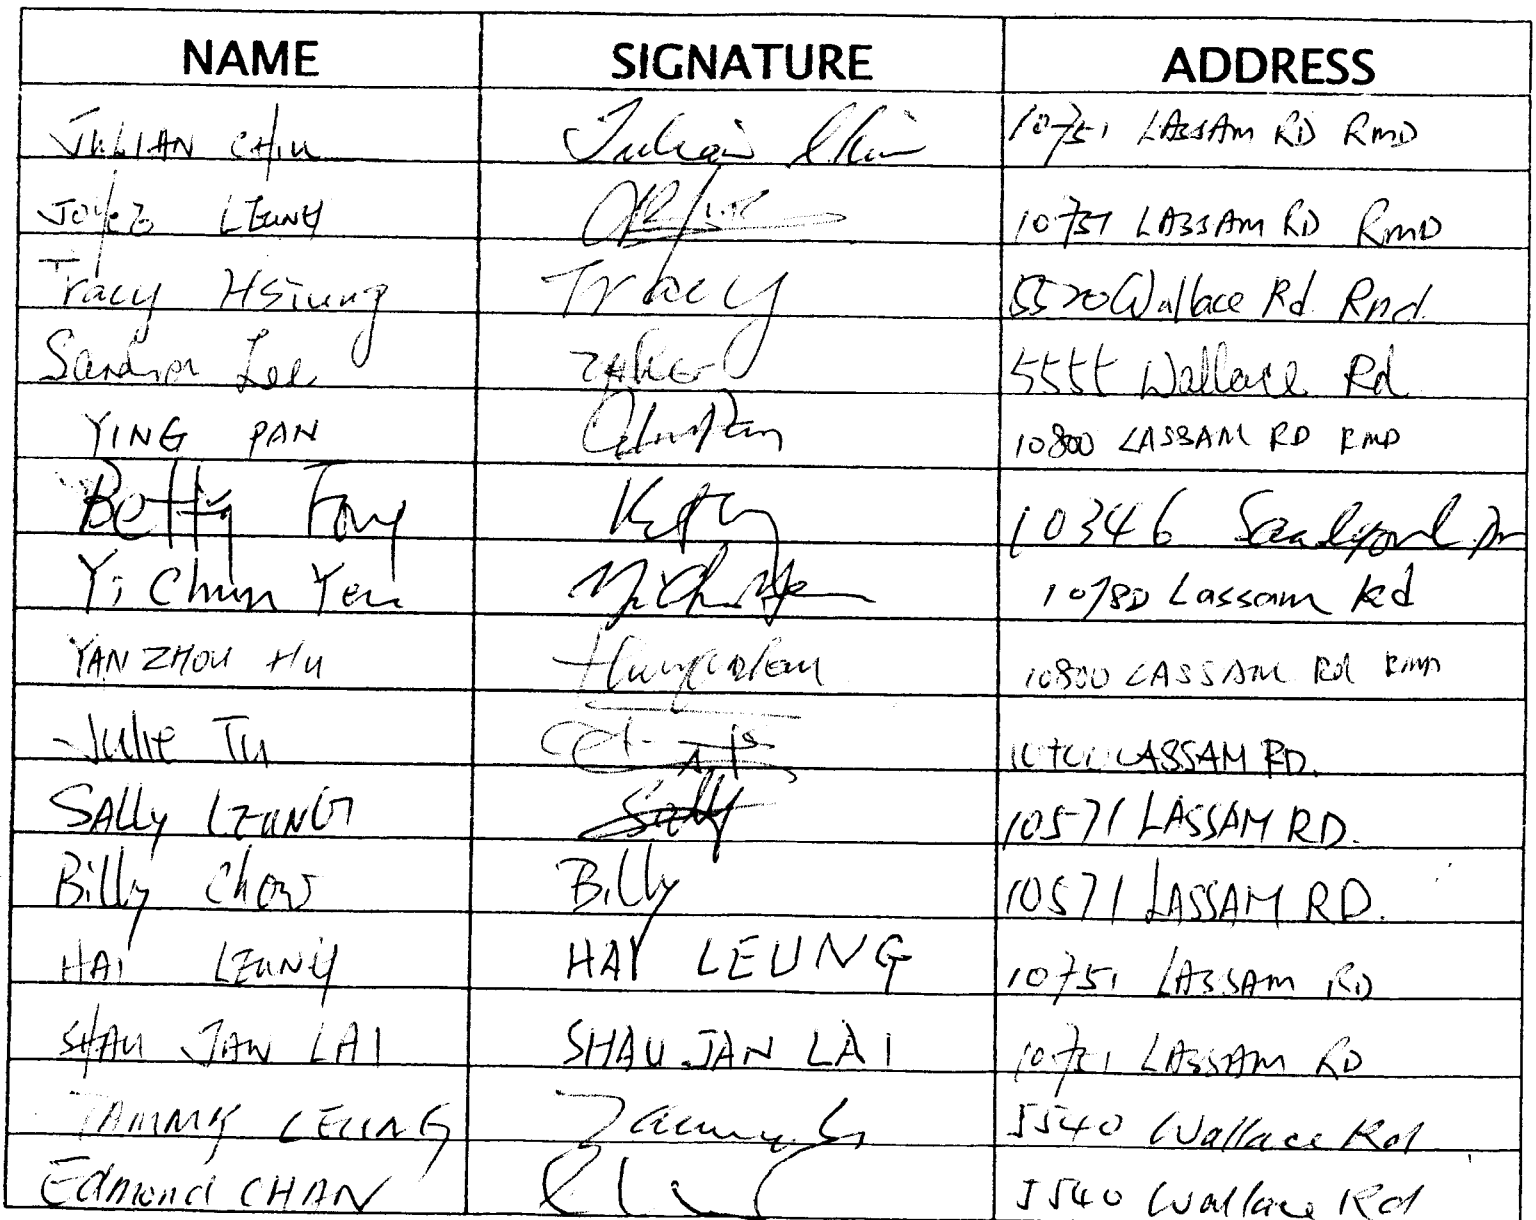 NAME SIGNATURE ADDRESS
JULIAN CHIU Julian Chiu 10751 LASSAM RD RMD
LEUNG 10751 LASSAM RD RMD
Tracy Hsiung Tracy 5520 Wallace Rd Rmd.
Lee 5555 Wallace Rd
YING PAN 10800 LASSAM RD RMD
Betty Fong 10346
Yi Chun Yen Yi Chun Yen 10780 Lassam Rd
YANZHOU HU 10800 LASSAM Rd RMD
Julie Tu LASSAM RD.
SALLy LEUNG Sally 10571 LASSAM RD.
Billy Chow Billy 10571 LASSAM RD.
HAI LEUNG HAY LEUNG 10751 LASSAM RD
SHAU JAN LAI SHAU JAN LAI 10751 LASSAM RD
TAMMY LEUNG 5540 Wallace Rd
Edmond CHAN 5540 Wallace Rd